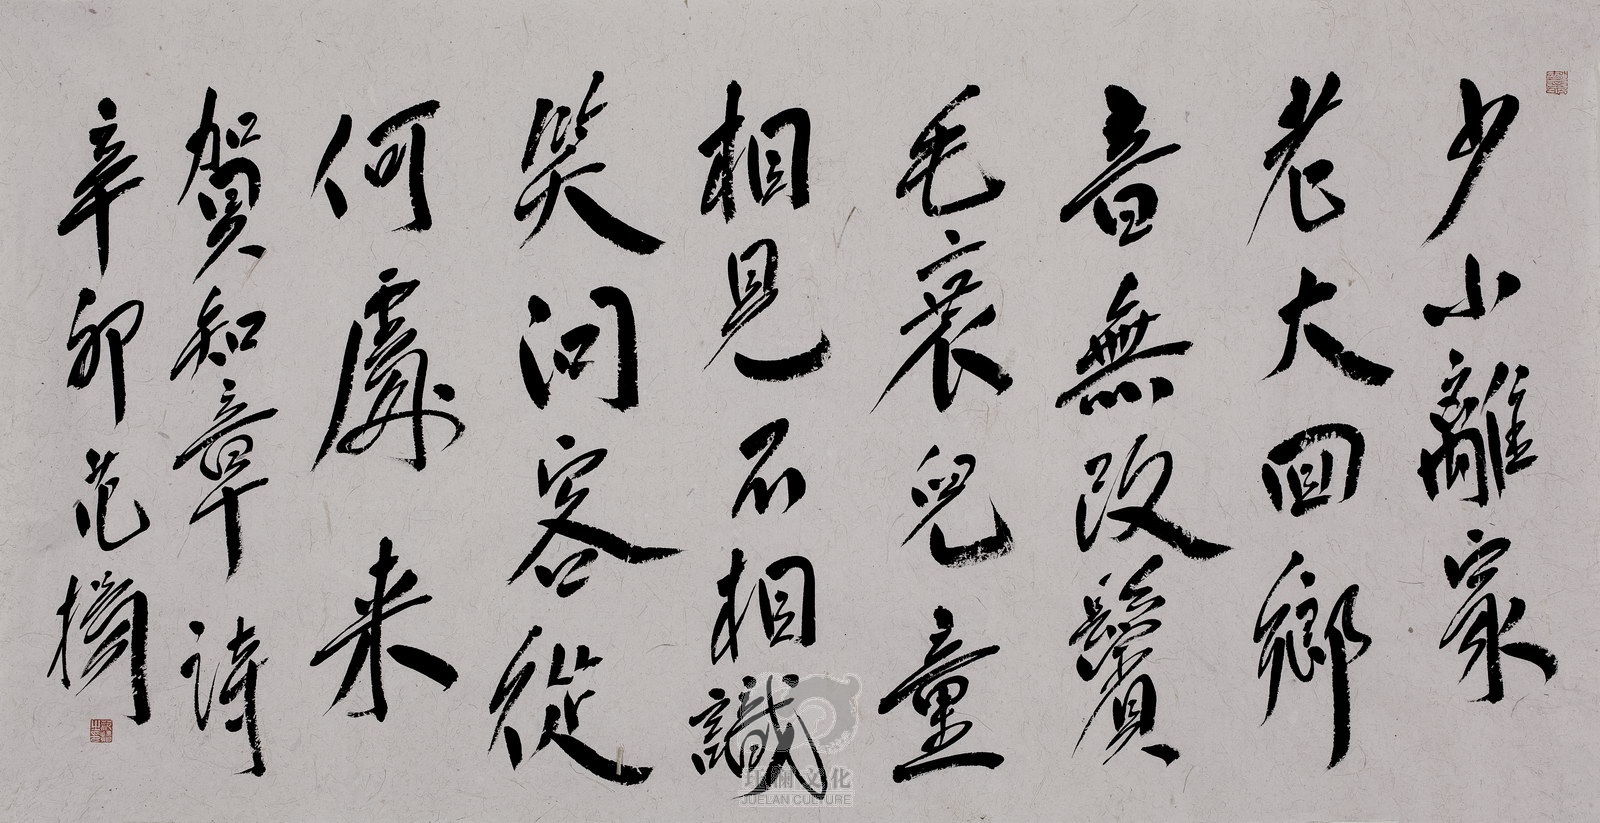 少小離家
老大回鄉
音無改鬢
毛衰兒童
相見不相識
笑問客從
何處来
賀知章詩
辛卯范
文化
JUELAN CULTURE